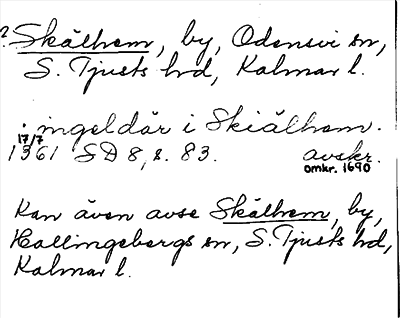 ? Skälhem, by, Odensvi sn,
S. Tjusts hd, Kalmar l.
i ingeldär i Skiälhem.
17/7
1361 SD 8, s. 83. avskr.
omkr. 1690
Kan även avse Skälhem, by,
Hallingebergs sn, S. Tjusts hd,
Kalmar l.